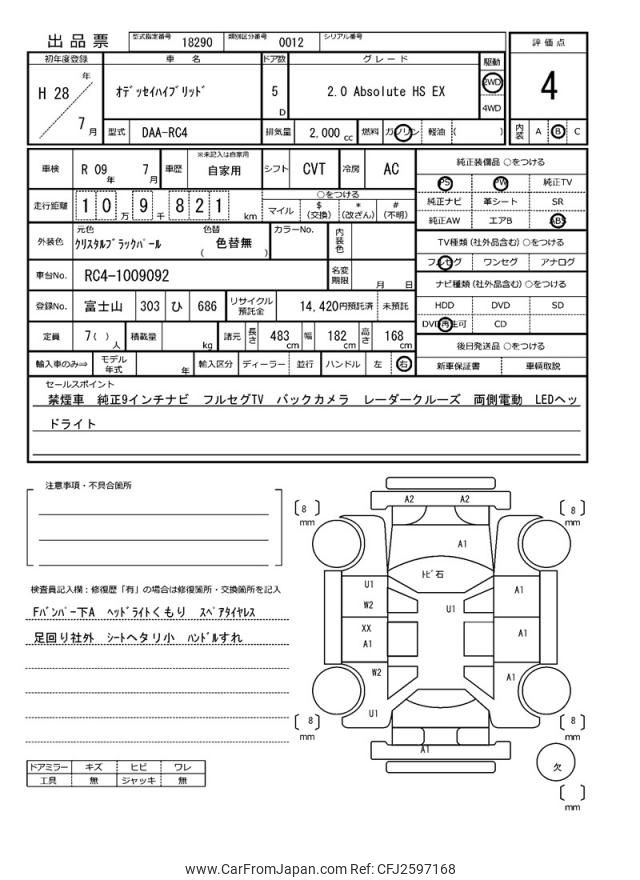 出品票 型式指定番号 18290 類別区分番号 0012 シリアル番号
評価点
4
内装 A B C
初年度登録 車名 ドア数 グレード 駆動
H 28 年 7 月
ｵﾃﾞｯｾｲﾊｲﾌﾞﾘｯﾄﾞ 5 D 2.0 Absolute HS EX 2WD 4WD
型式 DAA-RC4 排気量 2,000 cc 燃料 ガソリン 軽油 ( )
車検 R 09 年 7 月 車歴 ※未記入は自家用 自家用 シフト CVT 冷房 AC
走行距離 1 0 万 9 千 8 2 1 km
○をつける
マイル $ (交換) * (改ざん) # (不明)
外装色 元色 ｸﾘｽﾀﾙﾌﾞﾗｯｸﾊﾟｰﾙ 色替 ( 色替無 ) カラーNo. 内装色
車台No. RC4-1009092 名変期限 月 日
登録No. 富士山 303 ひ 686 リサイクル預託金 14,420円預託済 未預託
定員 7( ) 人 積載量 kg 諸元 長さ 483 cm 幅 182 cm 高さ 168 cm
輸入車のみ⇒ モデル年式 年 輸入区分 ディーラー 並行 ハンドル 左 右
純正装備品 ○をつける
PS PW 純正TV
純正ナビ 革シート SR
純正AW エアB ABS
TV種類 (社外品含む) ○をつける
フルセグ ワンセグ アナログ
ナビ種類 (社外品含む) ○をつける
HDD DVD SD
DVD再生可 CD
後日発送品 ○をつける
新車保証書 車輌取説
セールスポイント
禁煙車 純正9インチナビ フルセグTV バックカメラ レーダークルーズ 両側電動 LEDヘッ
ドライト
注意事項・不具合箇所
検査員記入欄：修復歴「有」の場合は修復箇所・交換箇所を記入
Fﾊﾞﾝﾊﾟｰ下A ﾍｯﾄﾞﾗｲﾄくもり ｽﾍﾟｱﾀｲﾔﾚｽ
足回り社外 ｼｰﾄヘタリ小 ﾊﾝﾄﾞﾙすれ
ドアミラー キズ ヒビ ワレ
工具 無 ジャッキ 無
A2 A2
[ 8 ] mm [ 8 ] mm
A1
ﾄﾋﾞ石
U1 A1
W2 U1
XX A1
A1
W2 A1
U1
[ 8 ] mm [ 8 ] mm
A1
欠
[ ] mm
www.CarFromJapan.com Ref: CFJ2597168